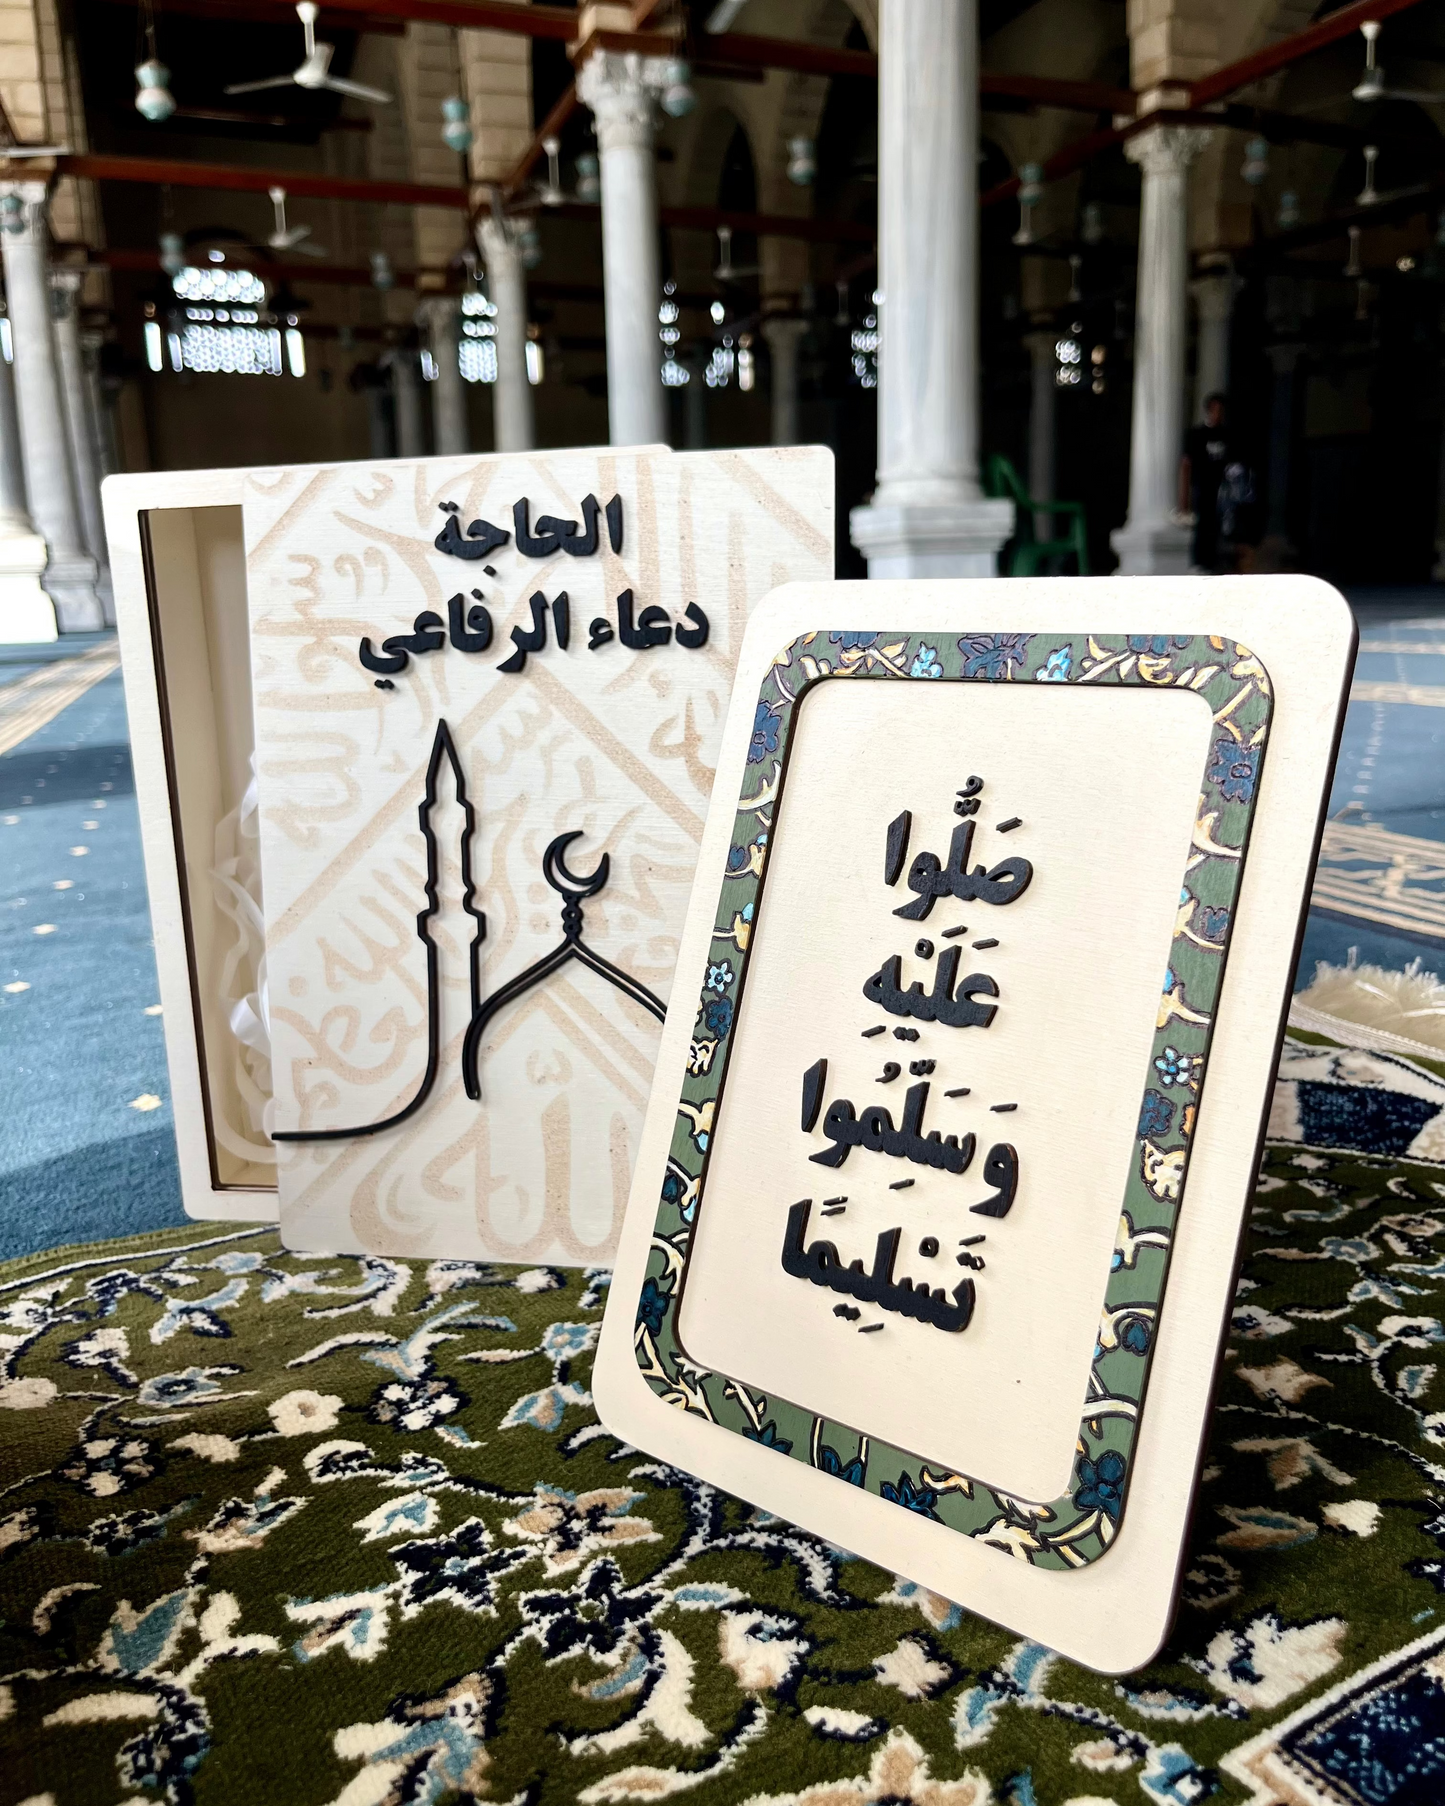 الحاجة
دعاء الرفاعي
صَلُّوا
عَلَيْهِ
وَسَلِّمُوا
تَسْلِيمًا